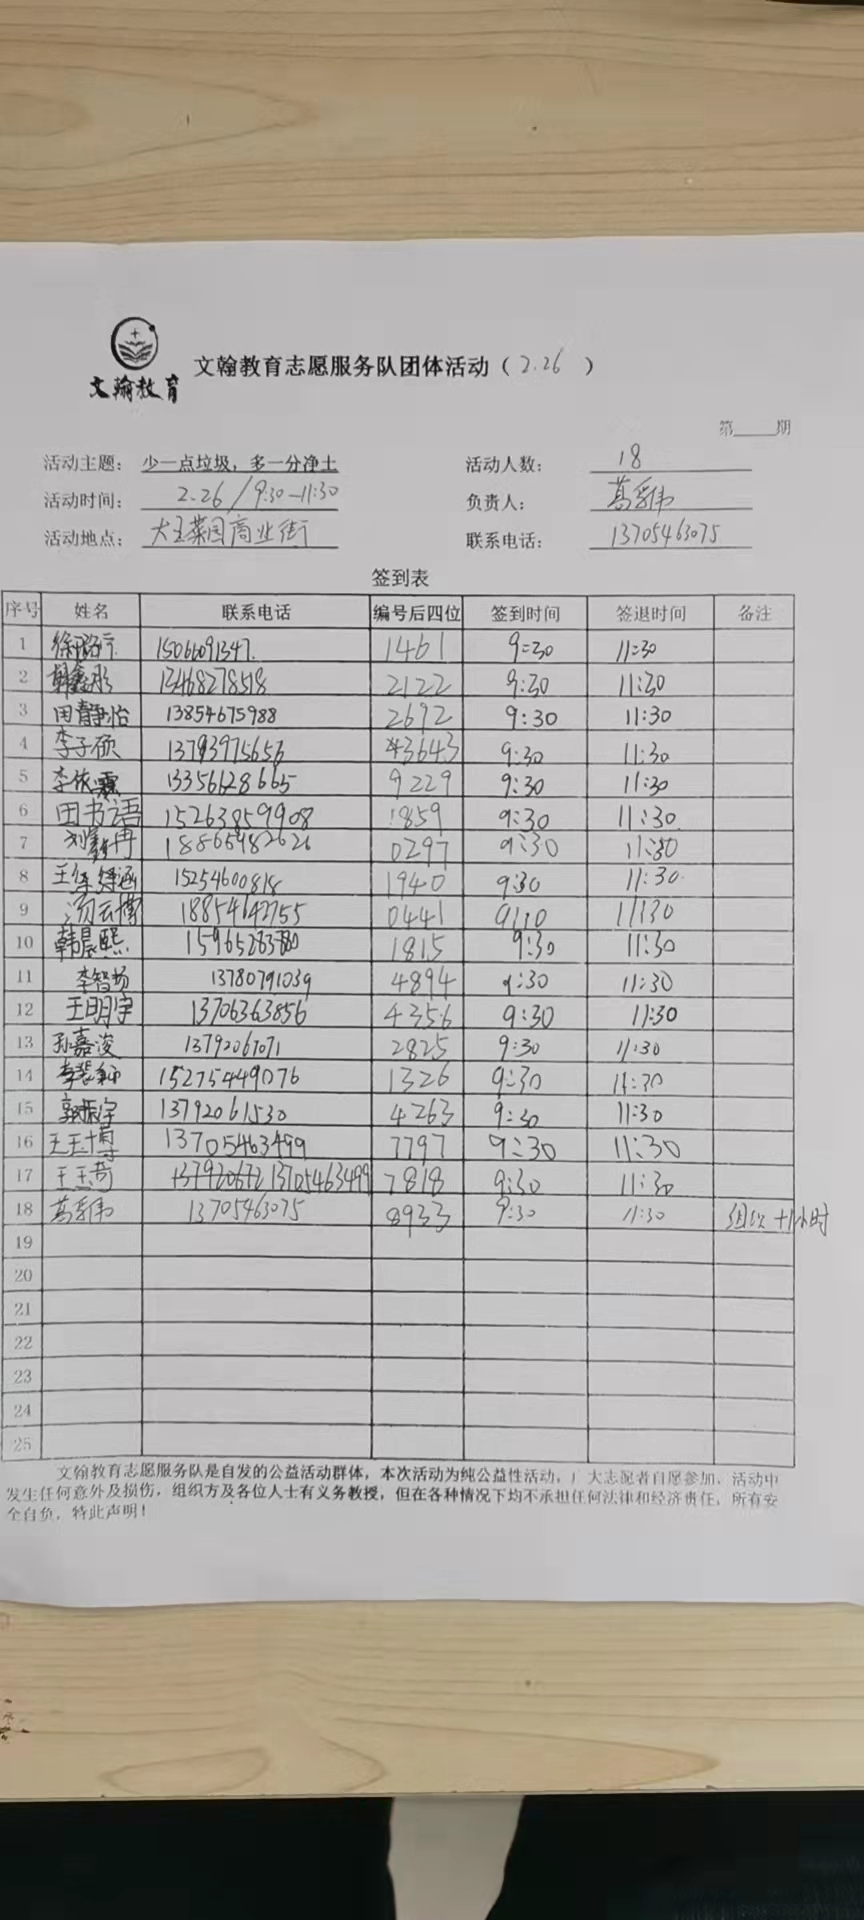 文翰教育
文翰教育志愿服务队团体活动（2.26）
第____期
活动主题：少一点垃圾，多一分净土 活动人数：18
活动时间：2.26/9:30-11:30 负责人：
活动地点：大王菜园商业街 联系电话：13705463075
签到表
序号 姓名 联系电话 编号后四位 签到时间 签退时间 备注
1 15066091347. 1461 9:30 11:30
2 韩鑫彤 13468278518 2122 9:30 11:30
3 田静怡 13854675988 2692 9:30 11:30
4 李子硕 13793975656 3643 9:30 11:30
5 李依霖 13356128665 9229 9:30 11:30
6 田书语 15263859908 1859 9:30 11:30
7 18865982626 0297 9:30 11:30
8 15254600818 1940 9:30 11:30
9 汤云博 18854142755 0441 9:10 11:30
10 韩晨熙 1815 9:30 11:30
11 李智扬 13780791039 4894 9:30 11:30
12 王明宇 13706363856 4356 9:30 11:30
13 孙嘉浚 13792067071 2825 9:30 11:30
14 15275449076 1326 9:30 11:30
15 郭振宇 13792061530 4263 9:30 11:30
16 王玉博 13705463499 7797 9:30 11:30
17 王玉奇 13705463499 7818 9:30 11:30
18 13705463075 8933 9:30 11:30 +1小时
19
20
21
22
23
24
25
文翰教育志愿服务队是自发的公益活动群体，本次活动为纯公益性活动，广大志愿者自愿参加，活动中
发生任何意外及损伤，组织方及各位人士有义务教授，但在各种情况下均不承担任何法律和经济责任，所有安
全自负，特此声明！